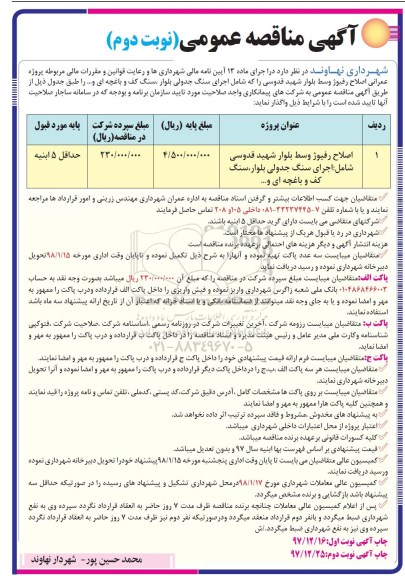 آگهی مناقصه عمومی (نوبت دوم)
شهرداری نهاوند در نظر دارد در اجرای ماده ۱۳ آیین نامه مالی شهرداری ها و رعایت قوانین و مقررات مالی مربوطه پروژه
عمرانی اصلاح رفیوژ وسط بلوار شهید قدوسی را که شامل اجرای سنگ جدولی بلوار، سنگ کف و باغچه ای و... را طبق جدول ذیل از
طریق آگهی مناقصه عمومی به شرکت های پیمانکاری واجد صلاحیت مورد تایید سازمان برنامه و بودجه که در سامانه ساجار صلاحیت
آنها تایید شده است را با شرایط ذیل واگذار نماید:
ردیف عنوان پروژه مبلغ پایه (ریال) مبلغ سپرده شرکت در مناقصه(ریال) پایه مورد قبول
۱ اصلاح رفیوژ وسط بلوار شهید قدوسی ۴/۵۰۰/۰۰۰/۰۰۰ ۲۳۰/۰۰۰/۰۰۰ حداقل ۵ ابنیه
شامل:اجرای سنگ جدولی بلوار،سنگ
کف و باغچه ای و...
متقاضیان جهت کسب اطلاعات بیشتر و گرفتن اسناد مناقصه به اداره عمران شهرداری مهندس زرینی و امور قرارداد ها مراجعه
نمایند و یا با شماره تلفن ۷-۳۳۲۳۷۴۴۵-۰۸۱ داخلی ۱۰۵و ۲۰۸ تماس حاصل فرمایند
شرکتهای متقاضی می بایست دارای گرید حداقل ۵ ابنیه باشند.
شهرداری در رد یا قبول هریک از پیشنهاد ها مختار است.
هزینه انتشار آگهی و دیگر هزینه های احتمالی برعهده برنده مناقصه است
متقاضیان میبایست سه عدد پاکت تهیه نموده و آنهارا به شرح ذیل تکمیل نموده و تاپایان وقت اداری مورخه ۹۸/۱/۱۵تحویل
دبیرخانه شهرداری نموده و رسید دریافت نماید
پاکت الف:متقاضیان میبایست مبلغ سپرده شرکت در مناقصه را که مبلغ آن ۲۳۰/۰۰۰/۰۰۰ ریال میباشد بصورت وجه نقد به حساب
بانک ملی شعبه زاگرس شهرداری واریز نموده و فیش واریزی را داخل پاکت الف قرارداده ودرب پاکت را ممهور به
مهر و امضا نموده و یا به جای وجه نقد میتوانند از ضمانتنامه بانکی و یا اسناد خزانه که اعتبار آن از تاریخ ارائه پیشنهاد سه ماه باشد
استفاده نمایند.
پاکت ب: متقاضیان میبایست رزومه شرکت ،آخرین تغییرات شرکت در روزنامه رسمی ،اساسنامه شرکت ،صلاحیت شرکت ،فتوکپی
شناسنامه وکارت ملی مدیر عامل و رئیس هیئت مدیره و اسناد مناقصه را در داخل پاکت ب قرارداده و درب پاکت را ممهور به مهر و
امضا نمایند.
پاکت ج:متقاضیان میبایست فرم ارائه قیمت پیشنهادی خود را داخل پاکت ج قرارداده و درب پاکت را ممهور به مهر و امضا نمایند.
متقاضیان میبایست هر سه پاکت الف ،ب،ج را درداخل پاکت دیگر قرارداده و درب پاکت را ممهور به مهر و امضا نموده و آنرا تحویل
دبیرخانه شهرداری نمایند.
متقاضیان میبایست بر روی پاکت ها مشخصات کامل ،آدرس دقیق شرکت،کد پستی ،کدملی ،تلفن تماس و نامه پروژه را قید نمایند
و همچنین کلیه پاکت هارا ممهور به مهر و امضا نمایند
به پیشنهاد های مخدوش ،مشروط و فاقد سپرده ترتیب اثر داده نخواهد شد.
اعتبار پروژه از محل اعتبارات داخلی شهرداری میباشد.
کلیه کسورات قانونی برعهده برنده مناقصه میباشد.
قیمت پیشنهادی بر اساس فهرست بها ابنیه سال ۹۷ و بدون تعدیل میباشد.
کمیسیون عالی متقاضیان می بایست تا پایان وقت اداری پنجشنبه مورخه ۹۸/۱/۱۵پیشنهاد خودرا تحویل دبیرخانه شهرداری نموده
ورسید دریافت نمایند.
کمیسیون عالی معاملات شهرداری مورخ ۹۸/۱/۱۷درمحل شهرداری تشکیل و پیشنهاد های رسیده را در صورتیکه حداقل سه
پیشنهاد باشد بازگشایی و برنده مشخص میگردد.
پس از اعلام کمیسیون عالی معاملات چنانچه برنده مناقصه ظرف مدت ۷ روز حاضر به انعقاد قرارداد نگردد سپرده وی به نفع
شهرداری ضبط میگردد و بانفر دوم قرارداد منعقد میگردد ودرصورتیکه نفر دوم نیز ظرف مدت ۷ روز حاضر به انعقاد قرارداد نگردد
سپرده وی نیز به نفع شهرداری ضبط میگردد.
چاپ آگهی نوبت اول:۹۷/۱۲/۱۶
چاپ آگهی نوبت دوم:۹۷/۱۲/۲۵
محمد حسین پور- شهردار نهاوند
۰۲۱-۸۸۳۴۹۶۷۰-۵